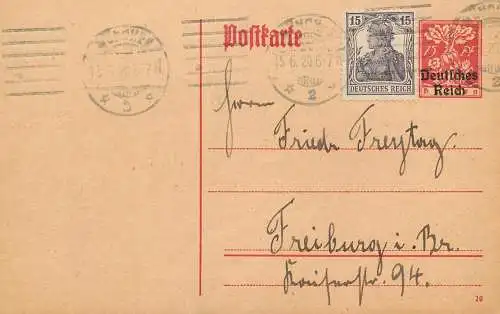 Postkarte
15 15
DEUTSCHES REICH
15
Deutsches
Reich
15.6.20.6-7N
2
Herrn
Friedr. Freytag
Freiburg i. Br.
Kaiserstr. 94.
20